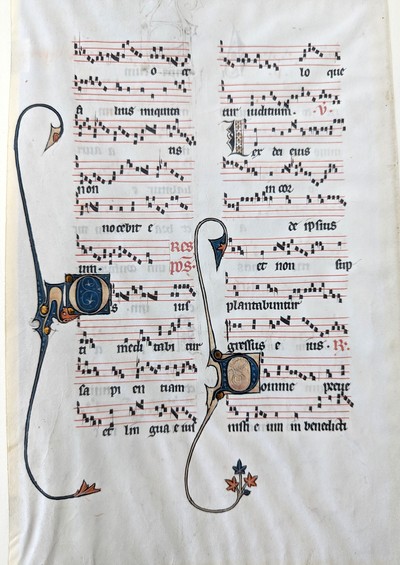 o et
fi lius iniquita
tis
non
nocebit e
um. RES
PO̅S.
Os ius
ti medi tabi tur
sa pi en tiam
et lin gua e ius
lo que
tur iuditium. V̅
Lex dei eius
in cor
de ipsius
et non sup
plantabuntur
gressus e ius. R.
Domine preue
nisti e um in benedicti